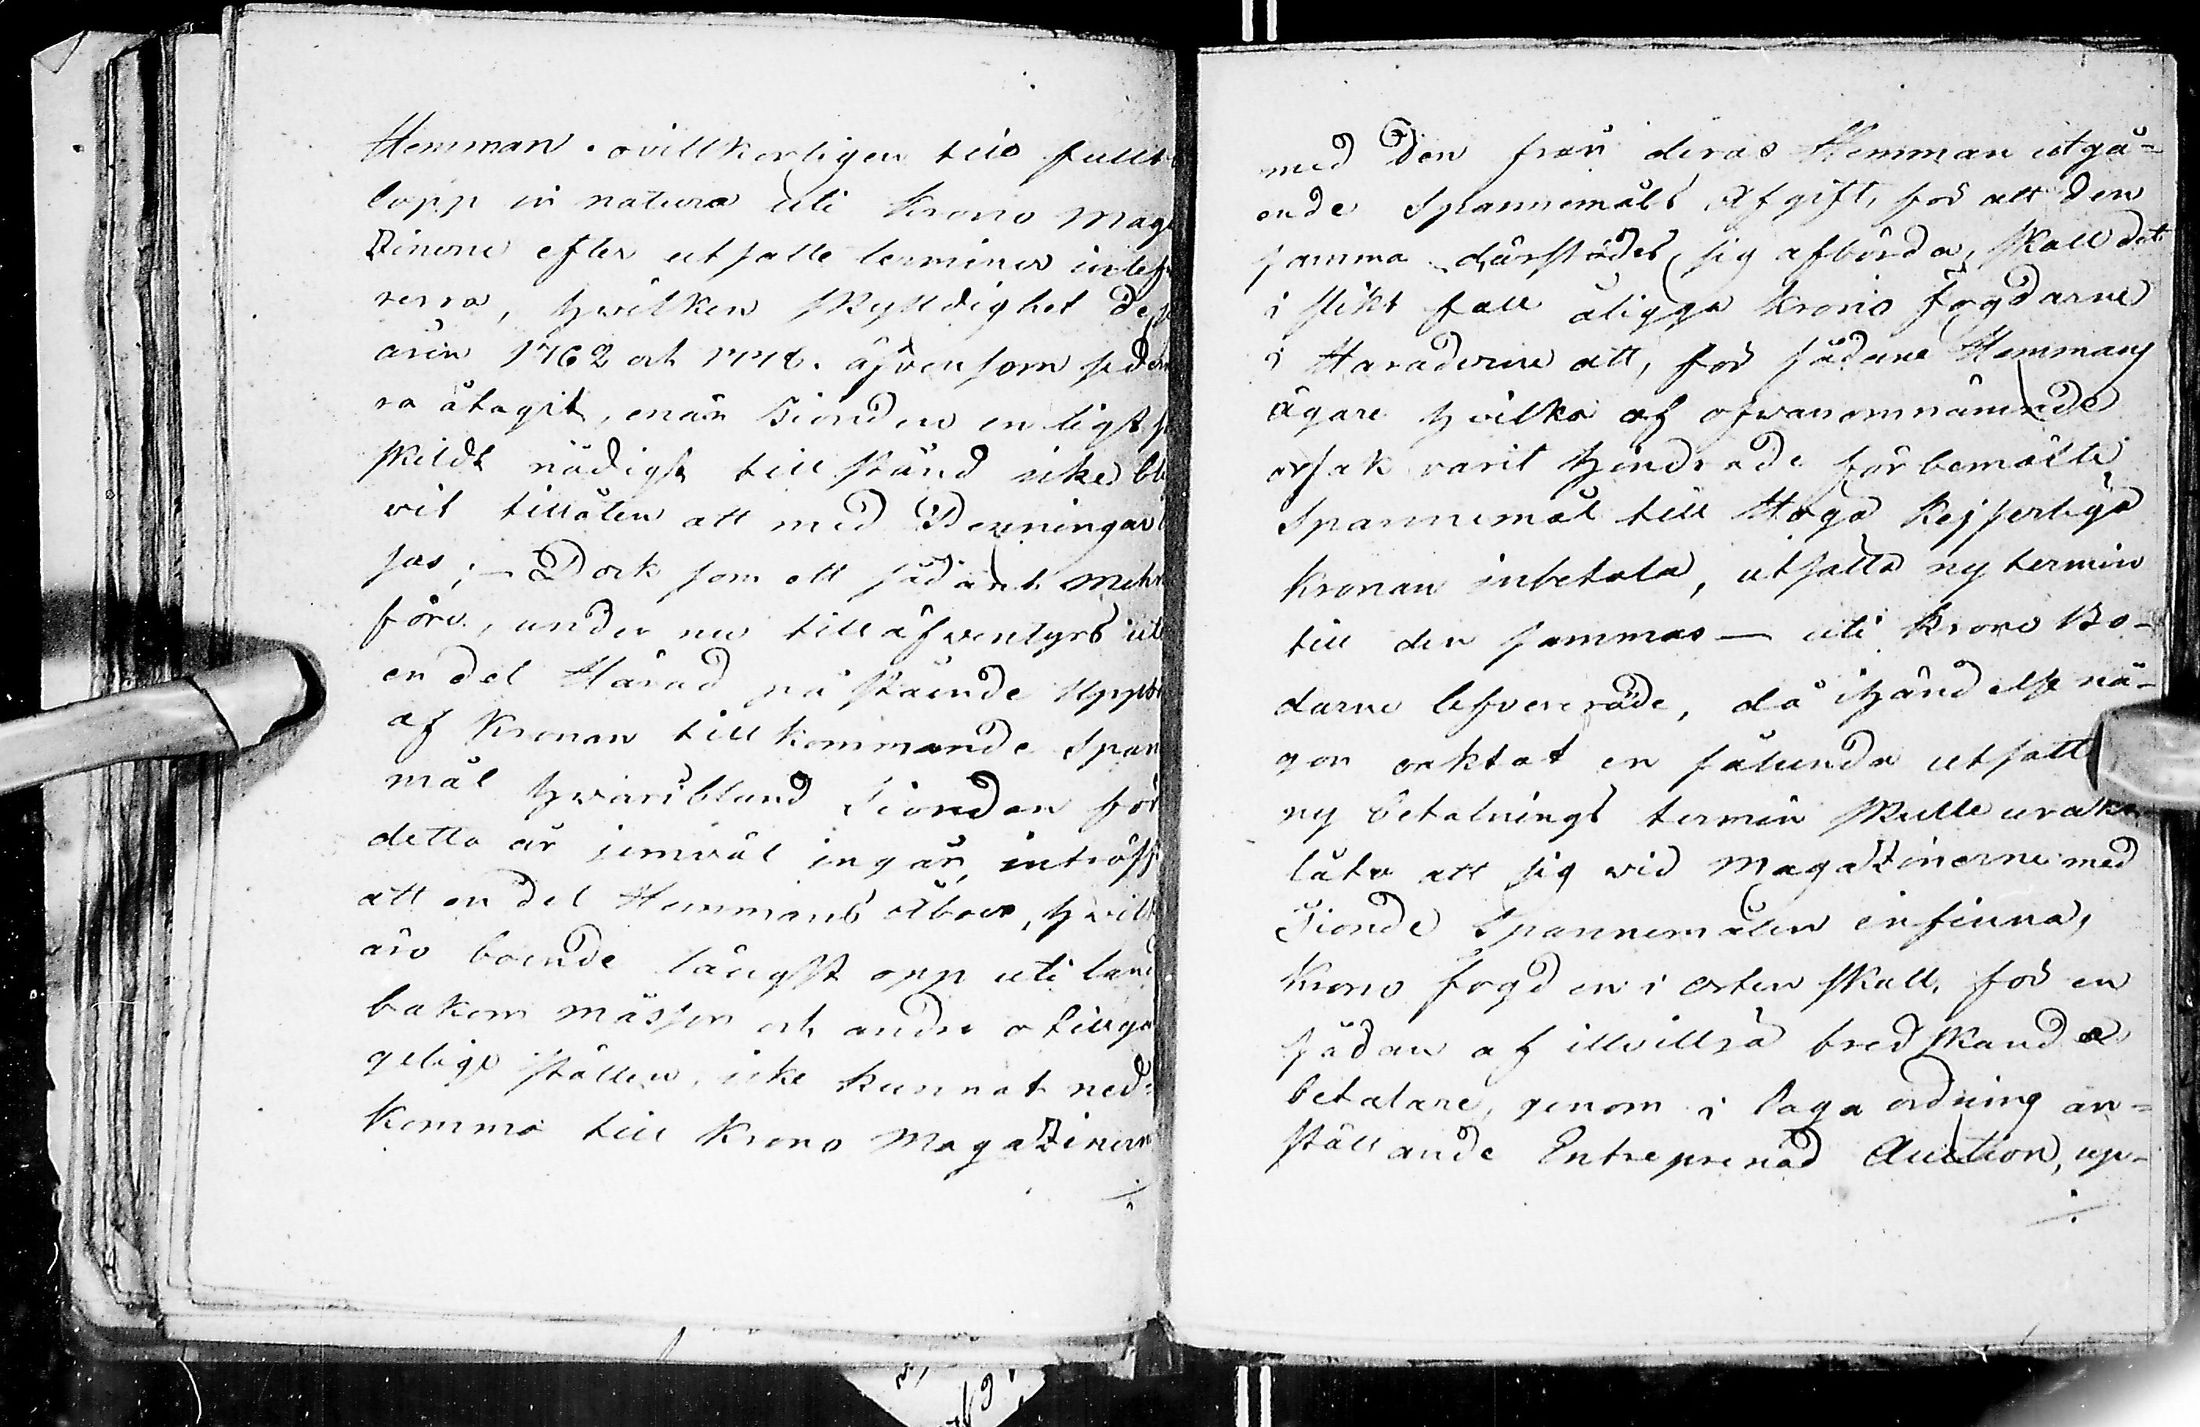 Hemman ovillkorligen till fullt
lopp in natura uti Krono Maga
Zinerne efter utsatte terminer inlef
rerra, hvilken skylldighet de
åren 1762 och 1776. äfvensom sedn
ra åtagit, enär Tionden enligt
skildt nådigt tillstånd icke bli
vit tillåten att med Penningar
sas; — Dock som ett sådant
före, under nu tilläfventyrs ute
en del Härad påstående Uppb
af Kronan tillkommande Span
mål hvaribland Tionden för
detta år jemväl ingår, inträff
att en del Hemmans åboer, hvilk
äro boende längst opp uti land
bakom mässor och andre otillgä
gelige ställen, icke kunnat ned=
komma till Krono MagaZinern
med Den från deras Hemman utgå=
ende Spannemåls Afgift, för att den
samma därstädes sig afbörda, skall det
i slikt fall åligga Krono Fogdarne
i Haraderne att, för sådane Hemmans
ägare hvilka af ofvanomnämnde
orsak varit hindrade förbemälte
Spannemål till Höga Kejserliga
Kronan inbetala, utsätta ny termin
till den sammas — uti Krono Bo-
darne lefvererade, då ihändelse nå-
gon oaktat en sålunda utsatt
ny betalnings termin skulle urakt
låta att sig vid MagaZinerne med
Tionde Spannemålen infinna,
Krono fogden i orten skall, för en
sådan af illvillja tredskande
betalare, genom i laga ordning an=
ställande Entreprenad Auction, up-